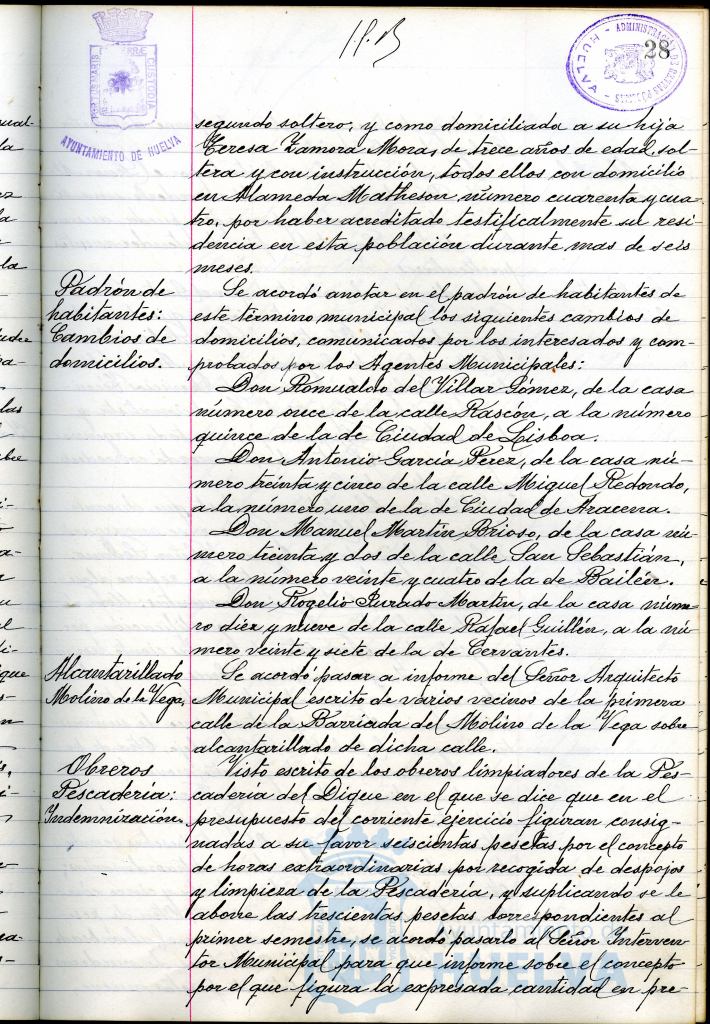 28
PORTUS MARIS ET TERRAE CUSTODIA
AYUNTAMIENTO DE HUELVA
ADMINISTRACIÓN DE RENTAS PÚBLICAS - HUELVA -
segundo soltero, y como domiciliada a su hija
Teresa Zamora Mora, de trece años de edad, sol-
tera y con instrucción, todos ellos con domicilio
en Alameda Matheson número cuarenta y cua-
tro, por haber acreditado testificalmente su resi-
dencia en esta población durante mas de seis
meses.
Padrón de
habitantes:
Cambios de
domicilios.
Se acordó anotar en el padrón de habitantes de
este término municipal los siguientes cambios de
domicilios, comunicados por los interesados y com-
probados por los Agentes Municipales:
Don Romualdo del Villar Gómez, de la casa
número once de la calle Rascón, a la número
quince de la de Ciudad de Lisboa.
Don Antonio García Pérez, de la casa nú-
mero treinta y cinco de la calle Miguel Redondo,
a la número uno de la de Ciudad de Aracena.
Don Manuel Martín Brioso, de la casa nú-
mero treinta y dos de la calle San Sebastián,
a la número veinte y cuatro de la de Bailén.
Don Rogelio Jurado Martín, de la casa núme-
ro diez y nueve de la calle Rafael Guillén, a la nú-
mero veinte y siete de la de Cervantes.
Alcantarillado
Molino de la Vega,
Se acordó pasar a informe del Señor Arquitecto
Municipal escrito de varios vecinos de la primera
calle de la Barriada del Molino de la Vega sobre
alcantarillado de dicha calle.
Obreros
Pescadería:
Indemnización.
Visto escrito de los obreros limpiadores de la Pes-
cadería del Dique en el que se dice que en el
presupuesto del corriente ejercicio figuran consig-
nadas a su favor seiscientas pesetas por el concepto
de horas extraordinarias por recogida de despojos
y limpieza de la Pescadería, y suplicando se le
abone las trescientas pesetas correspondientes al
primer semestre, se acordó pasarlo al Señor Interven-
tor Municipal para que informe sobre el concepto
por el que figura la expresada cantidad en pre-
Ayuntamiento de
HUELVA